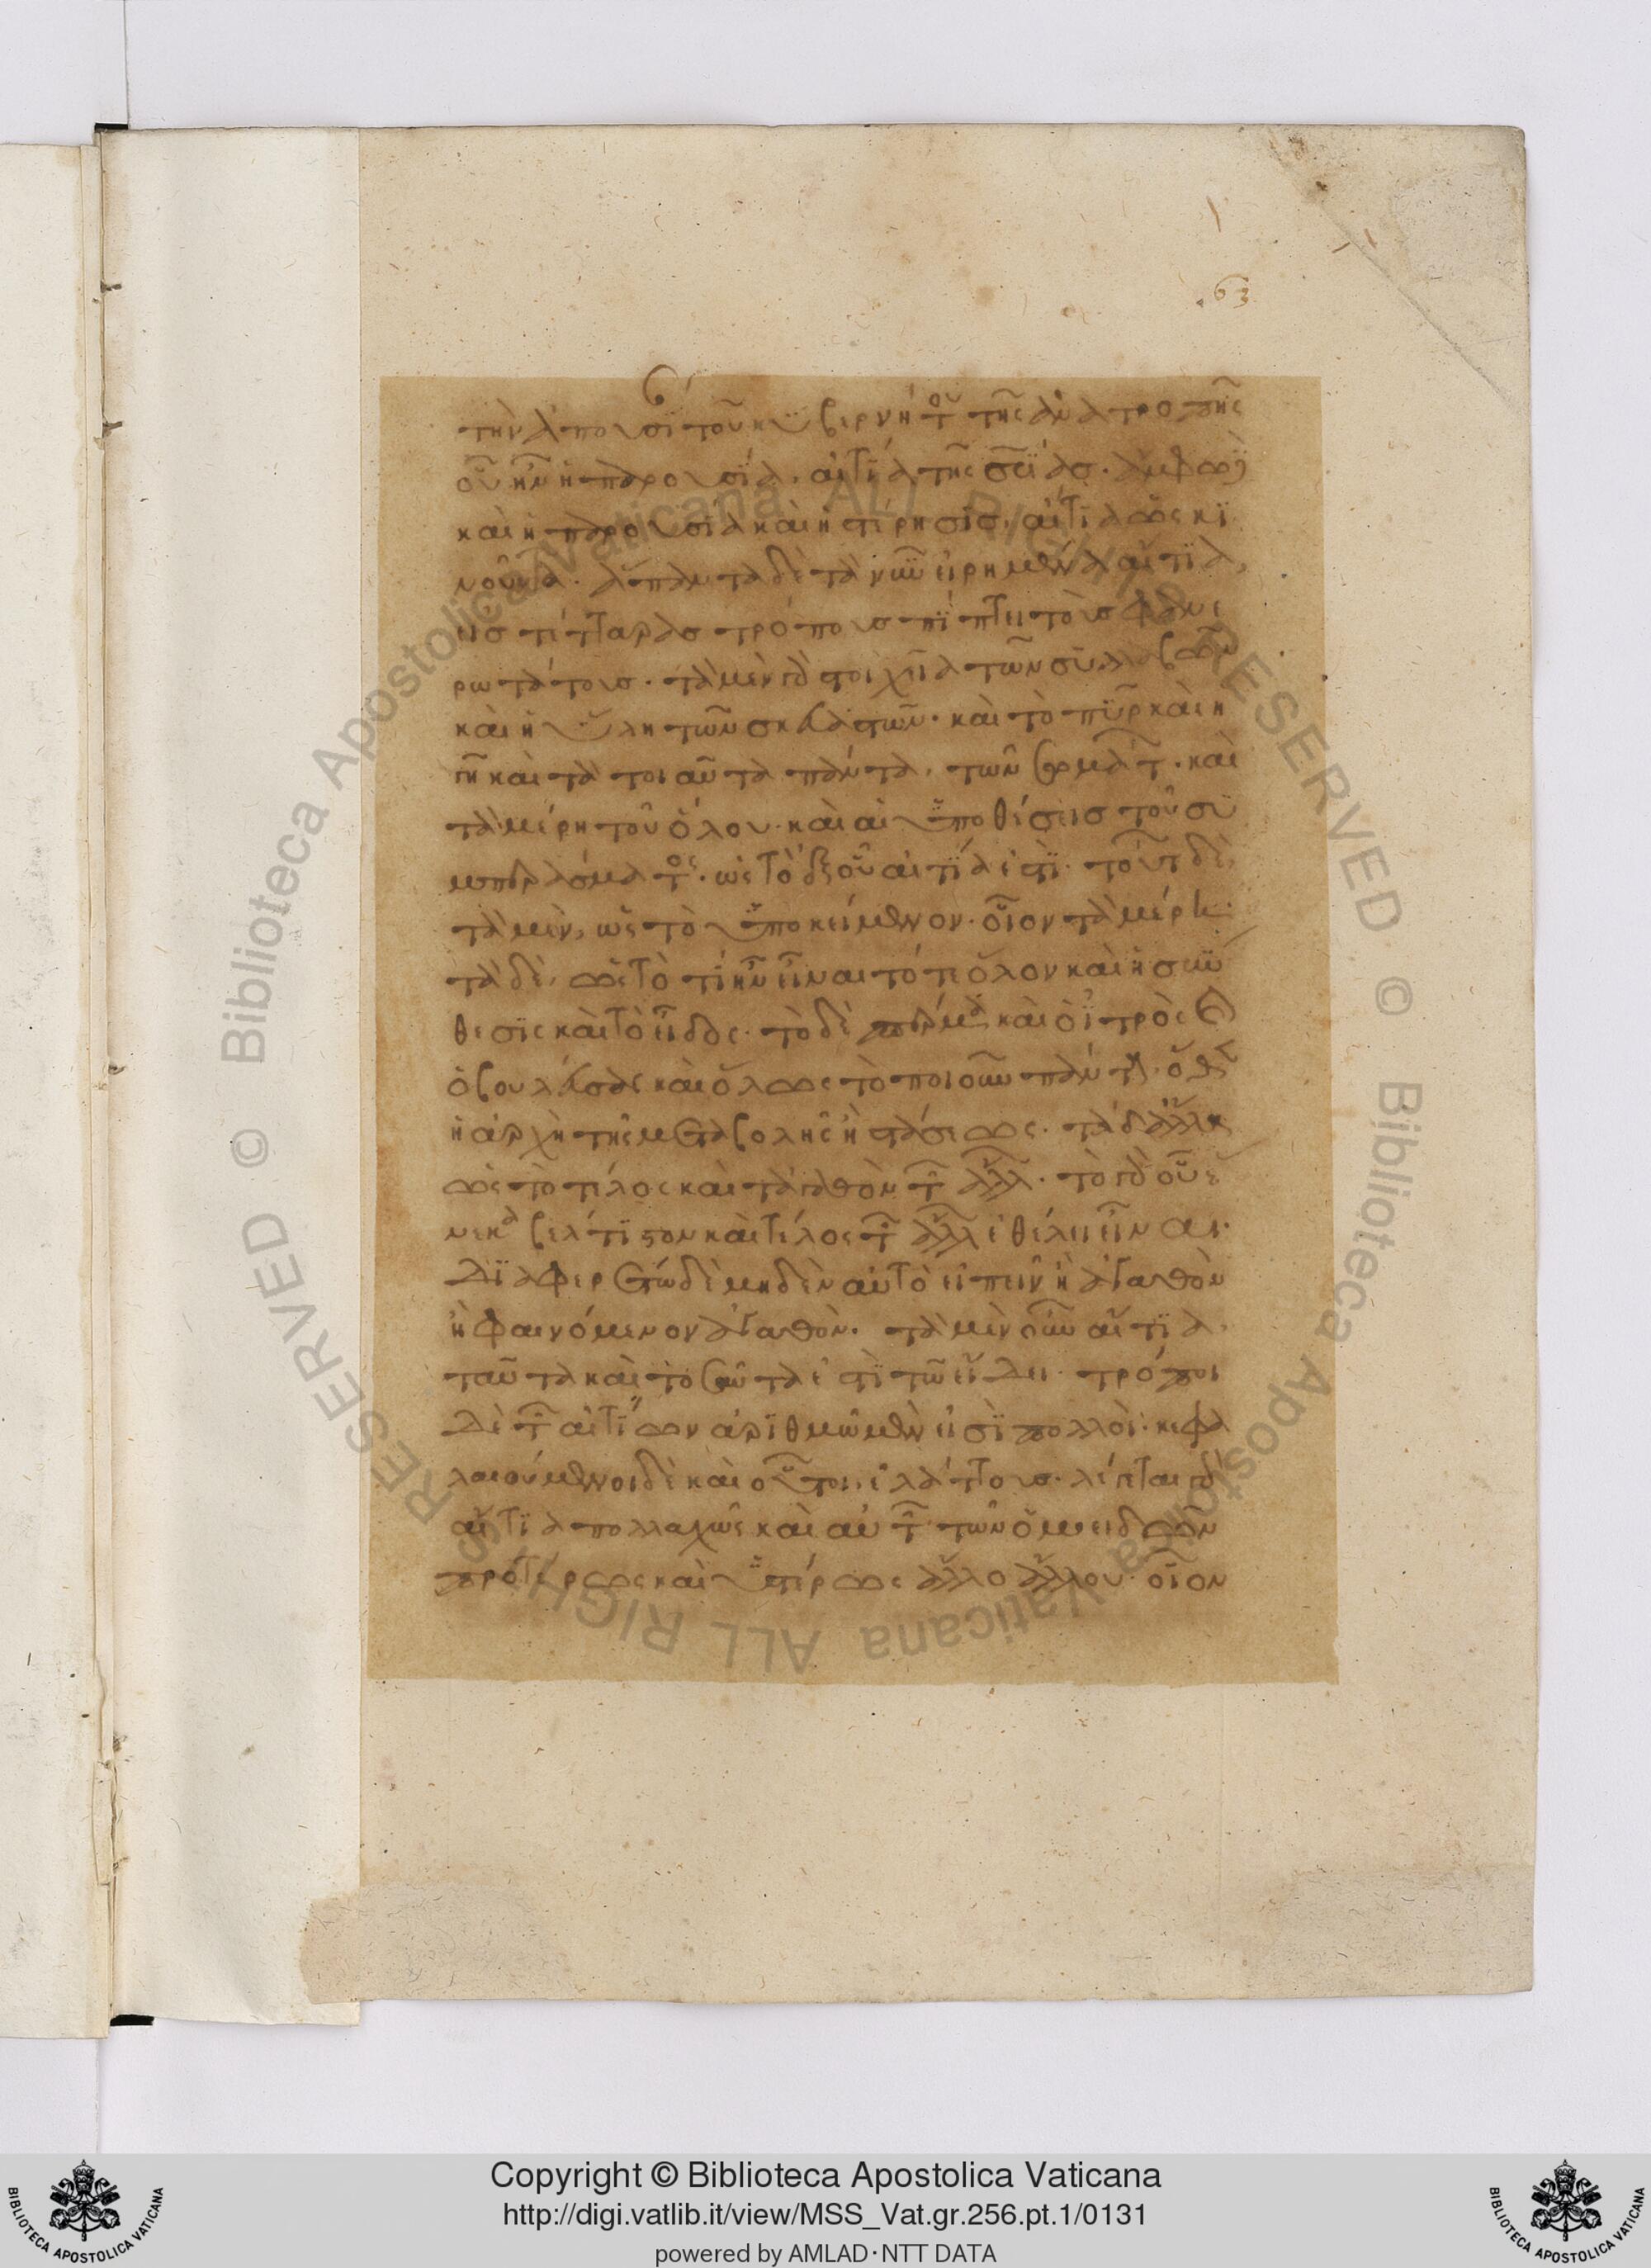 63
τὴν ἀπουσίαν τοῦ κυβερνήτου τῆς ἀνατροπῆς
οὗ ἦν ἡ παρουσία, αἰτία τῆς σωτηρίας. ἄμφω
καὶ ἡ παρουσία καὶ ἡ στέρησις, αἴτια ὡς κι
νοῦντα. ἅπαντα δὲ τὰ νῦν εἰρημένα αἴτια,
εἰς τέτταρας τρόπους πίπτει τοὺς φανε
ρωτάτους. τὰ μὲν γὰρ στοιχεῖα τῶν συλλαβῶν
καὶ ἡ ὕλη τῶν σκευαστῶν. καὶ τὸ πῦρ καὶ ἡ
γῆ καὶ τὰ τοιαῦτα πάντα, τῶν σωμάτων. καὶ
τὰ μέρη τοῦ ὅλου. καὶ αἱ ὑποθέσεις τοῦ συ
μπεράσματος. ὡς τὸ ἐξ οὗ αἴτιά ἐστι. τούτων δὲ
τὰ μὲν, ὡς τὸ ὑποκείμενον. οἷον τὰ μέρη.
τὰ δὲ, ὡς τὸ τί ἦν εἶναι τό τε ὅλον καὶ ἡ σύν
θεσις καὶ τὸ εἶδος. τὸ δὲ σπέρμα καὶ ὁ ἰατρὸς καὶ
ὁ βουλεύσας καὶ ὅλως τὸ ποιοῦν πάντα. ὅθεν
ἡ ἀρχὴ τῆς μεταβολῆς ἢ στάσεως. τὰ δ' ἄλλα
ὡς τὸ τέλος καὶ τἀγαθὸν τῶν ἄλλων. τὸ γὰρ οὗ ἕ
νεκα βέλτιστον καὶ τέλος τῶν ἄλλων ἐθέλει εἶναι.
διαφερέτω δὲ μηδὲν αὐτὸ εἰπεῖν ἢ ἀγαθὸν
ἢ φαινόμενον ἀγαθόν. τὰ μὲν οὖν αἴτια.
ταῦτα καὶ τοσαῦτά ἐστι τῷ εἴδει. τρόποι
δὲ τῶν αἰτίων ἀριθμῷ μέν εἰσι πολλοί. κεφα
λαιούμενοι δὲ καὶ οὗτοι, ἐλάττους. λέγεται γὰρ
αἴτια πολλαχῶς καὶ αὐτῶν τῶν ὁμοειδῶν
προτέρως καὶ ὑστέρως ἄλλο ἄλλου. οἷον
Copyright © Biblioteca Apostolica Vaticana
http://digi.vatlib.it/view/MSS_Vat.gr.256.pt.1/0131
powered by AMLAD·NTT DATA
BIBLIOTECA APOSTOLICA VATICANA
BIBLIOTECA APOSTOLICA VATICANA
© Biblioteca Apostolica Vaticana ALL RIGHTS RESERVED
© Biblioteca Apostolica Vaticana ALL RIGHTS RESERVED